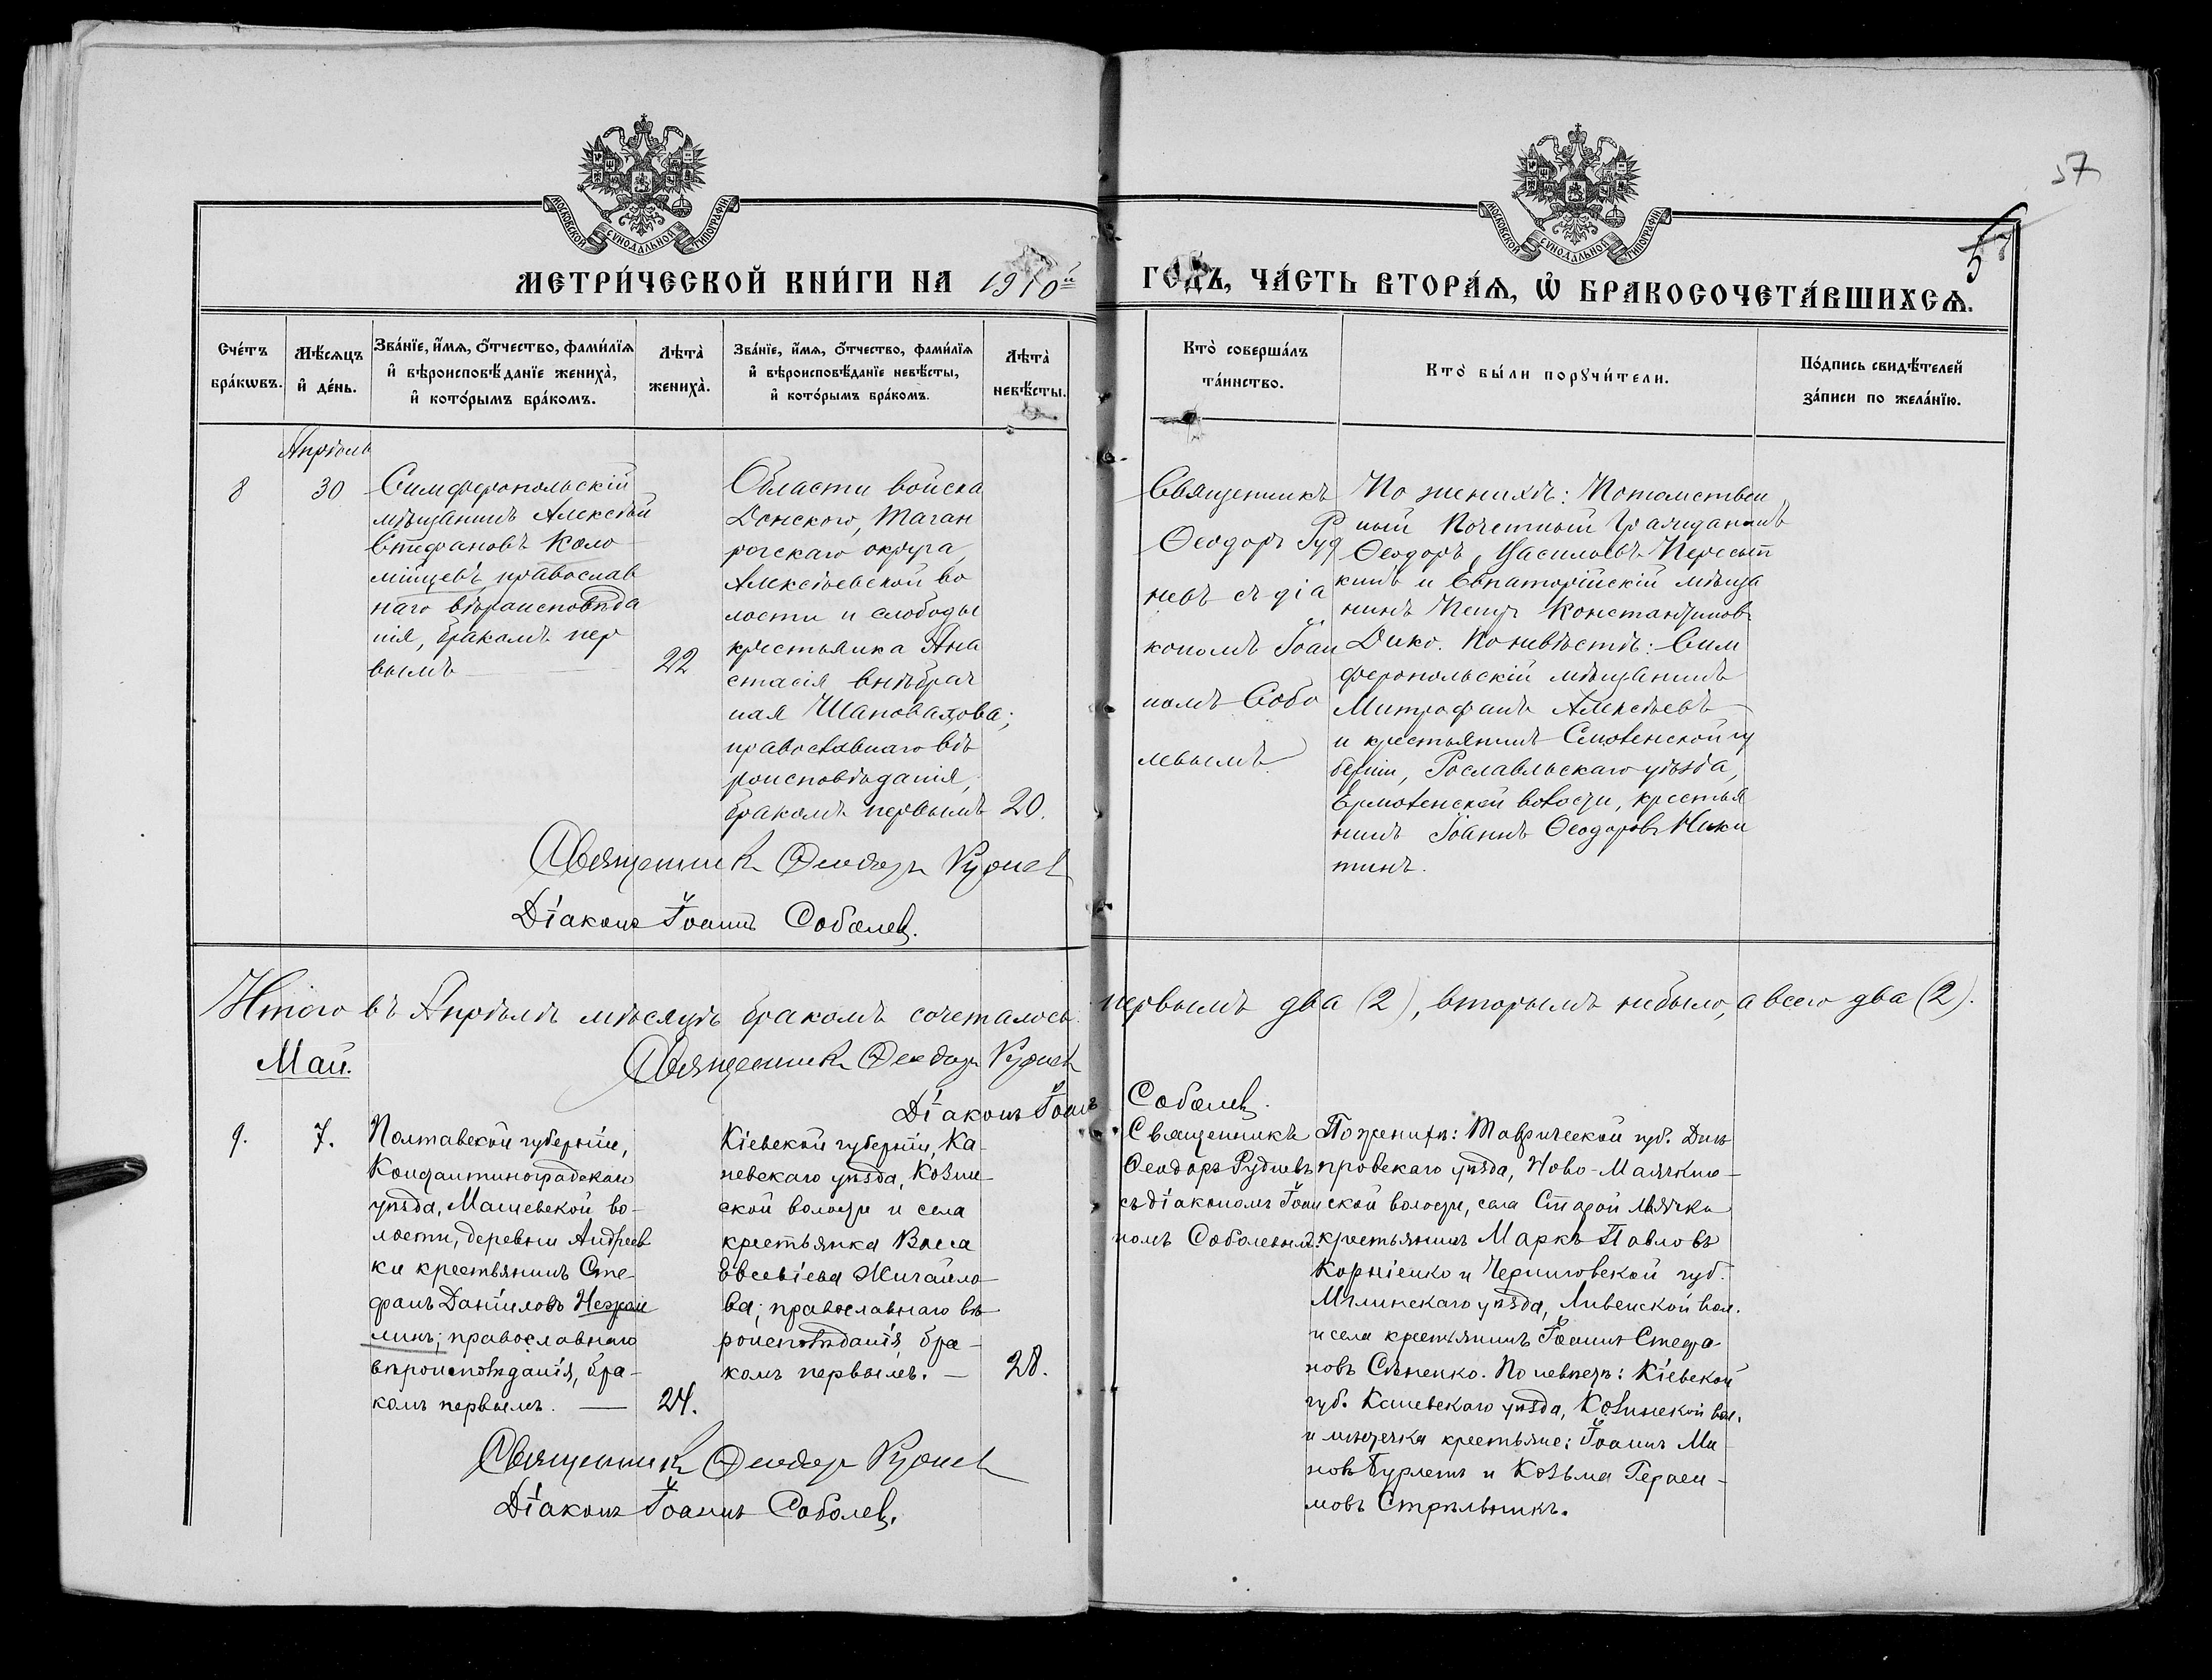 57
57
МОСКОВСКОЙ СѴНОДАЛЬНОЙ ТИПОГРАФІИ
МОСКОВСКОЙ СѴНОДАЛЬНОЙ ТИПОГРАФІИ
МЕТРИ́ЧЕСКОЙ КНИ́ГИ НА 1910й ГОДЪ, ЧА́СТЬ ВТОРА́Ѧ, Ѡ҆ БРАКОСОЧЕТА́ВШИХСѦ.
Сче́тъ
бра́кѡвъ.
Мѣ́сѧцъ
и҆ де́нь.
Зва́нїе, и҆́мѧ, ѻ҆́тчество, фами́лїѧ
и҆ вѣроисповѣ́данїе жениха̀,
и҆ кото́рымъ бра́комъ.
Лѣта̀
жениха̀.
Зва́нїе, и҆́мѧ, ѻ҆́тчество, фами́лїѧ
и҆ вѣроисповѣ́данїе невѣ́сты,
и҆ кото́рымъ бра́комъ.
Лѣта̀
невѣ́сты.
Кто̀ соверша́лъ
та́инство.
Кто̀ бы́ли порꙋчи́тели.
По́дпись свидѣ́телей
за́писи по жела́нїю.
Апрѣль
8
30
Симферопольскій
мѣщанинъ Алексѣй
Стефановъ Коло
мійцевъ, православ
наго вѣроисповѣда
нія, бракомъ пер
вымъ —
22
Области войска
Донского, Таган
рогскаго округа,
Алексѣевской во
лости и слободы
крестьянка Ана
стасія внѣбрач
ная Шаповалова;
православнаго вѣ
роисповѣданія,
бракомъ первымъ
20.
Священникъ
Ѳеодоръ Руд
невъ съ діа
кономъ Іоан
номъ Собо
левымъ.
По женихѣ: Потомствен
ный Почетный Гражданинъ
Ѳеодоръ Васильевъ Пересып
кинъ и Евпаторійскій мѣща
нинъ Петръ Константиновъ
Дико. По невѣстѣ: Сим
феропольскій мѣщанинъ
Митрофанъ Алексѣевъ —
и крестьянинъ Смоленской гу
берніи, Рославльскаго уѣзда,
Ермоленской волости, крестья
нинъ Іоаннъ Ѳеодоровъ Ники
тинъ.
Священникъ Ѳеодоръ Руднев
Діаконъ Іоаннъ Соболев.
Итого въ Апрѣлѣ мѣсяцѣ бракомъ сочеталось: первымъ два (2), вторымъ небыло, а всего два (2).
Май.
Священникъ Ѳеодоръ Руднев
Діаконъ Іоаннъ Соболев.
9.
7.
Полтавской губерніи,
Константиноградскаго
уѣзда, Машевской во-
лости, деревни Андреев
ки крестьянинъ Сте-
фанъ Даніиловъ
православнаго
вѣроисповѣданія, бра-
комъ первымъ. —
24.
Кіевской губерніи, Ка-
невскаго уѣзда, Козин-
ской волости и села
крестьянка Васса
Евсевіева Михайло-
ва; православнаго вѣ-
роисповѣданія, бра-
комъ первымъ. —
28.
Священникъ
Ѳеодоръ Рудневъ
съ діакономъ Іоан
номъ Соболевым.
По женихѣ: Таврической губ. Днѣ
провскаго уѣзда, Ново-Маячкин-
ской волости, села Старой Маячки
крестьянинъ Маркъ Павловъ
Корніенко и Черниговской губ.
Мглинскаго уѣзда, вол.
и села крестьянинъ Іоаннъ Стефа-
новъ По невѣстѣ: Кіевской
губ. Каневскаго уѣзда, Козинской вол.
и мѣстечка крестьяне: Іоаннъ Ми-
новъ и Козьма Гераси-
мовъ Стрѣльникъ.
Священникъ Ѳеодоръ Руднев
Діаконъ Іоаннъ Соболев.